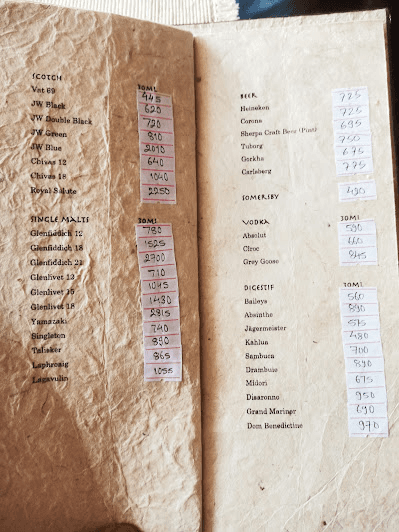 SCOTCH 30ML
Vat 69 445
JW Black 620
JW Double Black 720
JW Green 810
JW Blue 2010
Chivas 12 640
Chivas 18 1040
Royal Salute 2250
SINGLE MALTS 30ML
Glenfiddich 12 780
Glenfiddich 18 1525
Glenfiddich 21 2700
Glenlivet 710
Glenlivet 15 1045
Glenlivet 18 1480
Yamazaki 2815
Singleton 740
Talisker 890
Laphroaig 865
Lagavulin 1055
BEER
Heineken 725
Corona 725
Sherpa Craft Beer (Pint) 695
Tuborg 750
Gorkha 675
Carlsberg 775
SOMERSBY 490
VODKA 30ML
Absolut 590
Ciroc 660
Grey Goose 845
DIGESTIF 30ML
Baileys 560
Absinthe 890
Jägermeister 575
Kahlua 480
Sambuca 700
Drambuie 890
Midori 675
Disaronno 950
Grand Mariner 690
Dom Benedictine 970